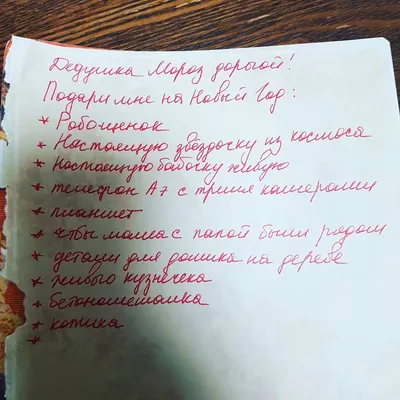 Дедушка Мороз дорогой!
Подари мне на Новый Год:
* Робощенок
* Настоящую звёздочку из космоса
* Настоящую бабочку живую
* телефон A7 с тремя камерами
* планшет
* чтбы мама с папой были рядом
* детали для домика на дереве
* живого кузнечека
* бетономешалка
* котика
*